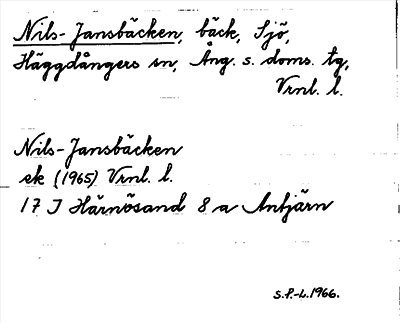 Nils-Jansbäcken, bäck, Sjö,
Häggdångers sn, Ång. s. doms. tg,
Vrnl. l.
Nils-Jansbäcken
ek (1965) Vrnl. l.
17 J Härnösand 8 a Antjärn
S.P.-L.1966.